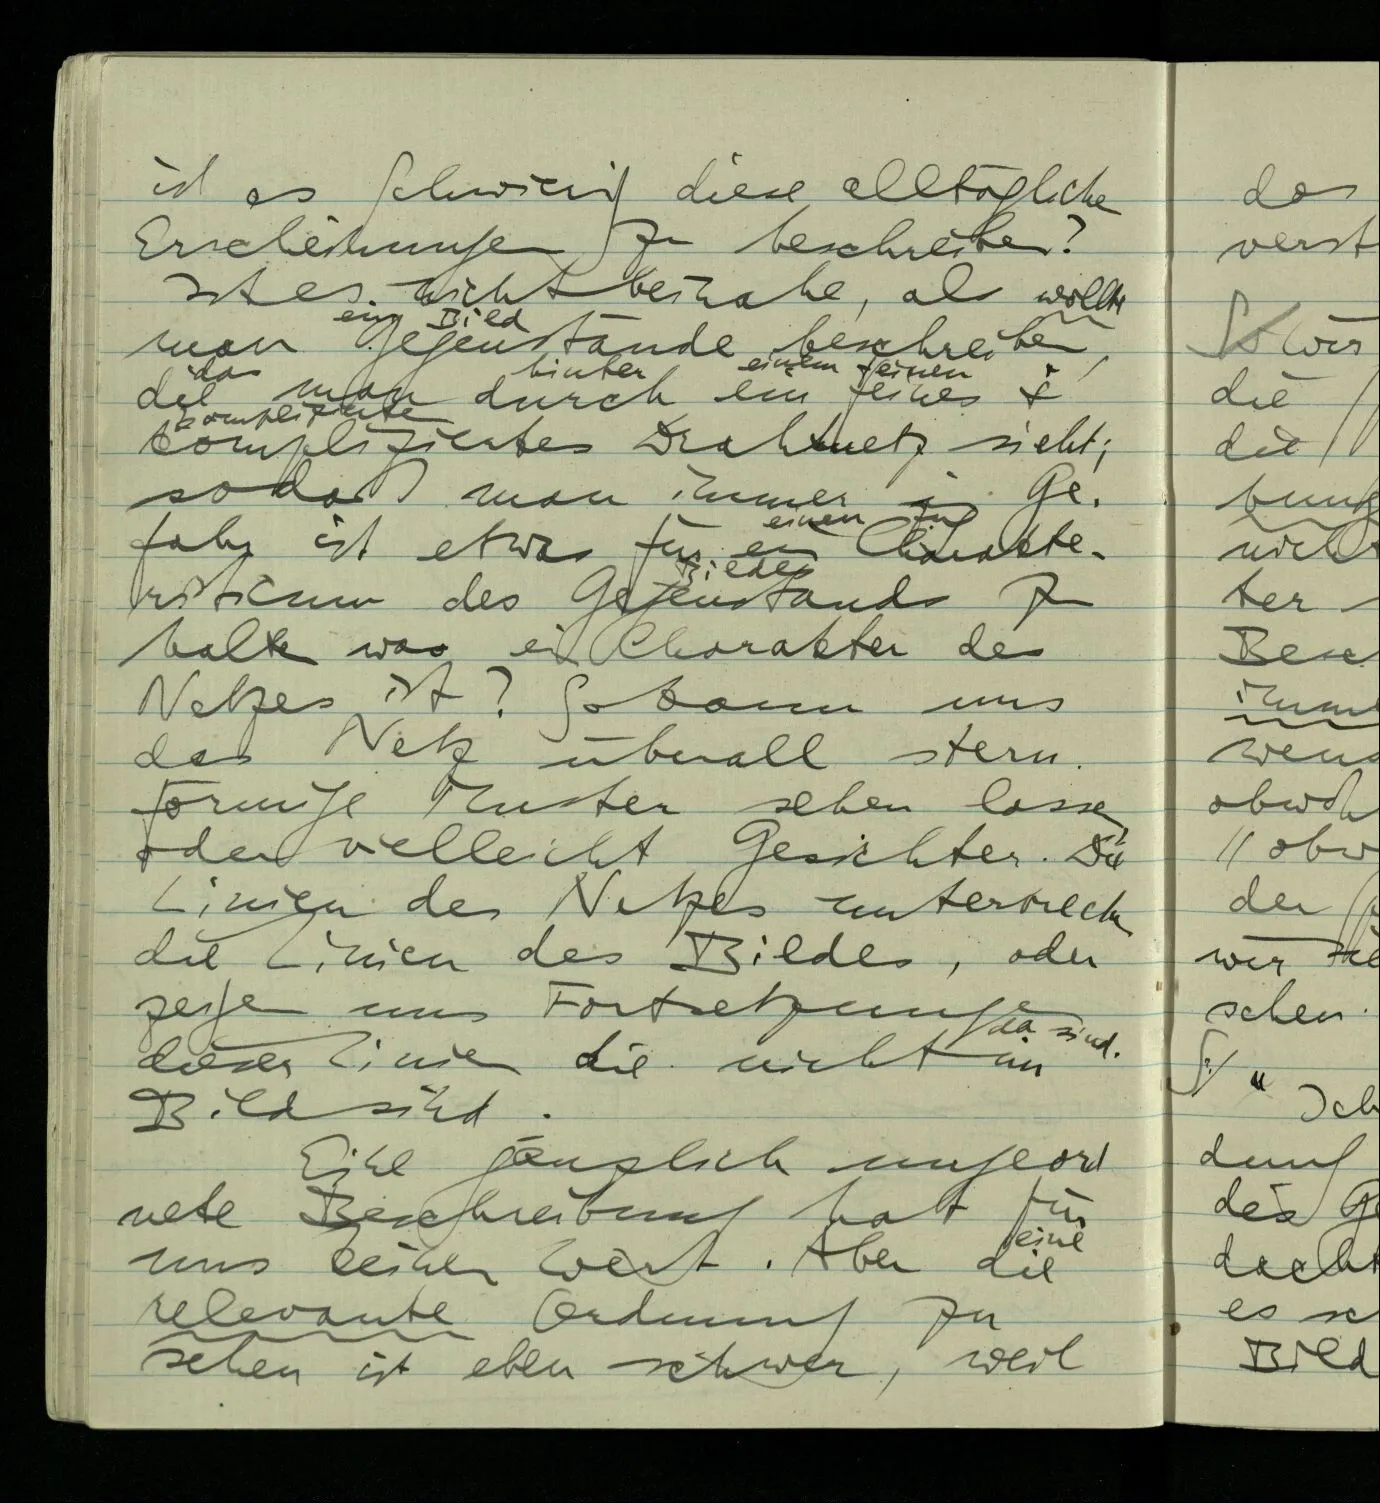 ist es schwierig diese alltägliche
Erscheinungen zu beschreiben?
Ist es nicht beinahe, als wollte
ein Bild
man Gegenstände beschreiben,
das hinter einem feinen
die man durch ein feines &
komplizierte
kompliziertes Drahtnetz sieht;
sodaß man immer in Ge-
einen Zug
fahr ist etwas für ein Charakte-
Bildes
ristikum des Gegenstands zu
halten was ein Charakter des
Netzes ist? So kann uns
das Netz überall stern-
förmige Muster sehen lassen
oder vielleicht Gesichter. Die
Linien des Netzes unterbrechen
die Linien des Bildes, oder
zeigen uns Fortsetzungen
da sind.
dieser Linien die nicht im
Bild sind.
Eine gänzlich ungeord
nete Beschreibung hat für
eine
uns keinen Wert. Aber die
relevante Ordnung zu
sehen ist eben schwer, weil
das
verst
So wir
die
die
bung
nich
ter
Besc
imme
wenn
obwoh
// obw
der
wir sie
sehen.
" Ich
dung
des Ge
dacht
es sc
Bild